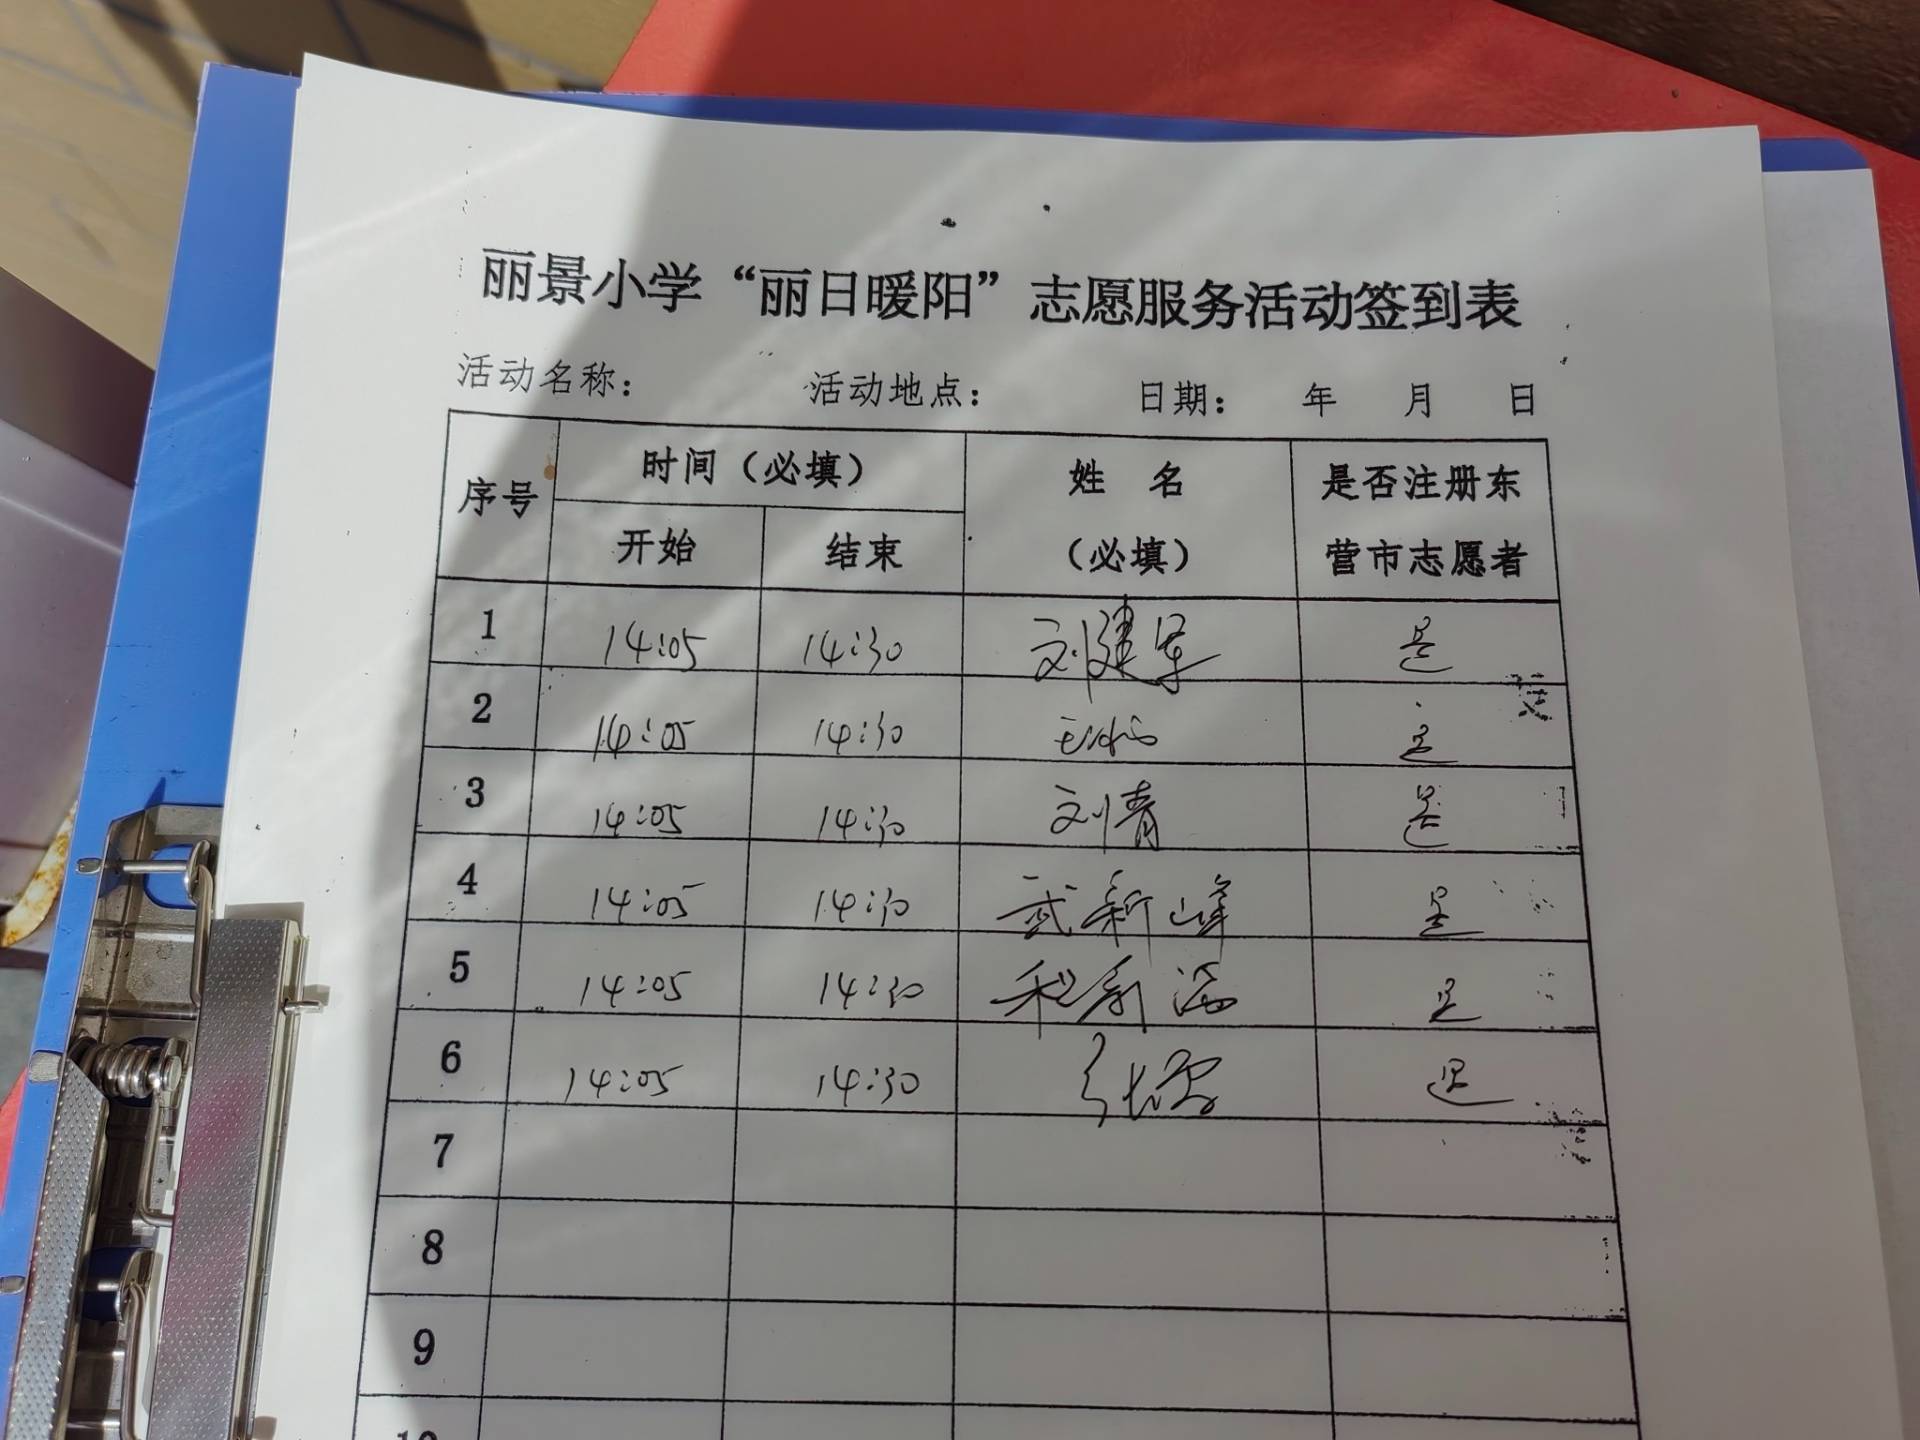 丽景小学“丽日暖阳”志愿服务活动签到表
活动名称： 活动地点： 日期： 年 月 日
序号 时间（必填） 姓 名（必填） 是否注册东营市志愿者
开始 结束
1 14:05 14:30 刘建军 是
2 14:05 14:30 是
3 14:05 14:30 刘青 是
4 14:05 14:30 武新峰 是
5 14:05 14:30 是
6 14:05 14:30 是
7
8
9
10